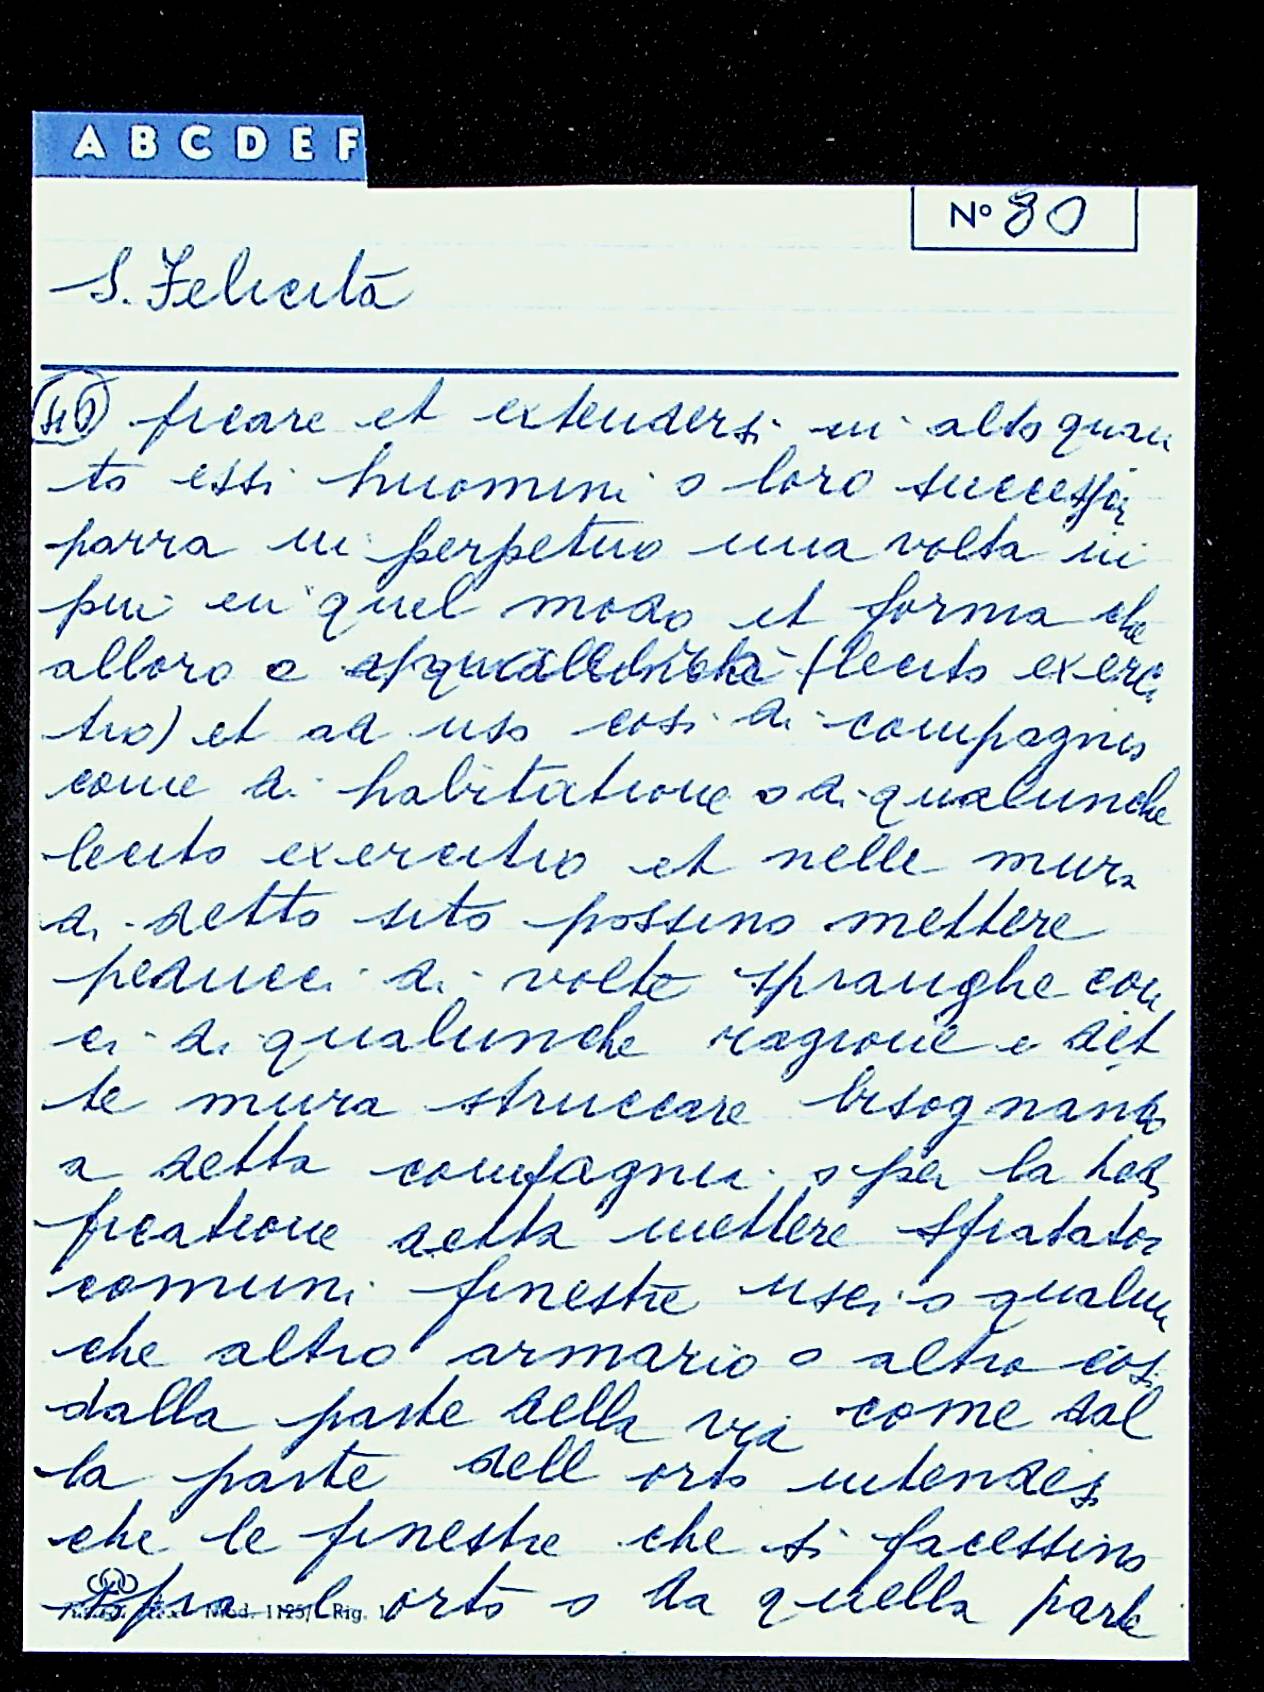 A B C D E F
Nº 80
S. Felicità
ficare et extendersi in alto quan
to essi huomini o loro successori
parra in perpetuo una volta in
piu en quel modo et forma che
alloro e (lecito exerci
tio) et ad uso così di compagnia
come di habitatione o di qualunche
lecito exercitio et nelle mura
di detto sito possino mettere
peducci di volte spranghe con
ci di qualunche ragione e det
te mura struccare bisognando
a detta compagnia o per la
ficatione detta mettere sfiatatoi
comuni finestre usci o qualun
che altro armario o altro cosi
dalla parte della via come dal
la parte dell orto intendesi
che le finestre che si facessino
sopra l orto o da quella parte
Mod. 1125/ Rig. 1